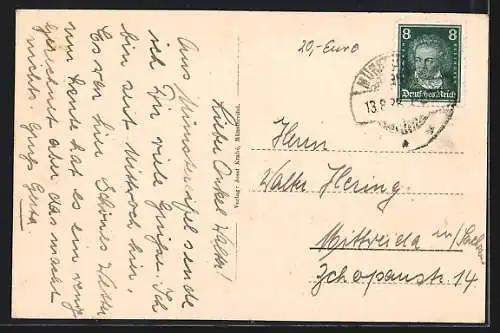 Lieber Onkel Walter!
Aus Münstereifel sende
ich Dir viele Grüsse. Ich
bin seit Mittwoch hier.
Es war hier schönes Wetter
nun heute hat es ein wenig
geregnet aber das macht
nichts. Gruss
Verlag: Josef Krahé, Münstereifel.
20,- Euro
8 8
Deutsches Reich
13.8.26
Herrn
Walter Hering
Mittweida i/Sachsen
Zschopaustr. 14